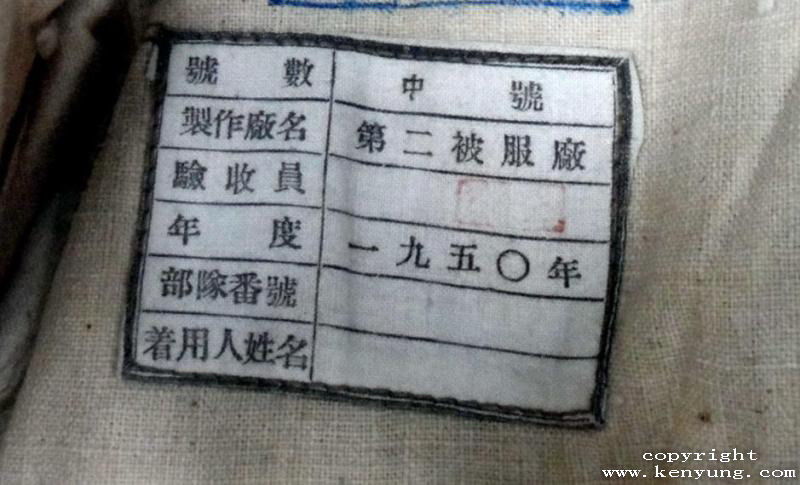 號數 中號
製作廠名 第二被服廠
驗收員
年度 一九五〇年
部隊番號
着用人姓名
copyright
www.kenyung.com